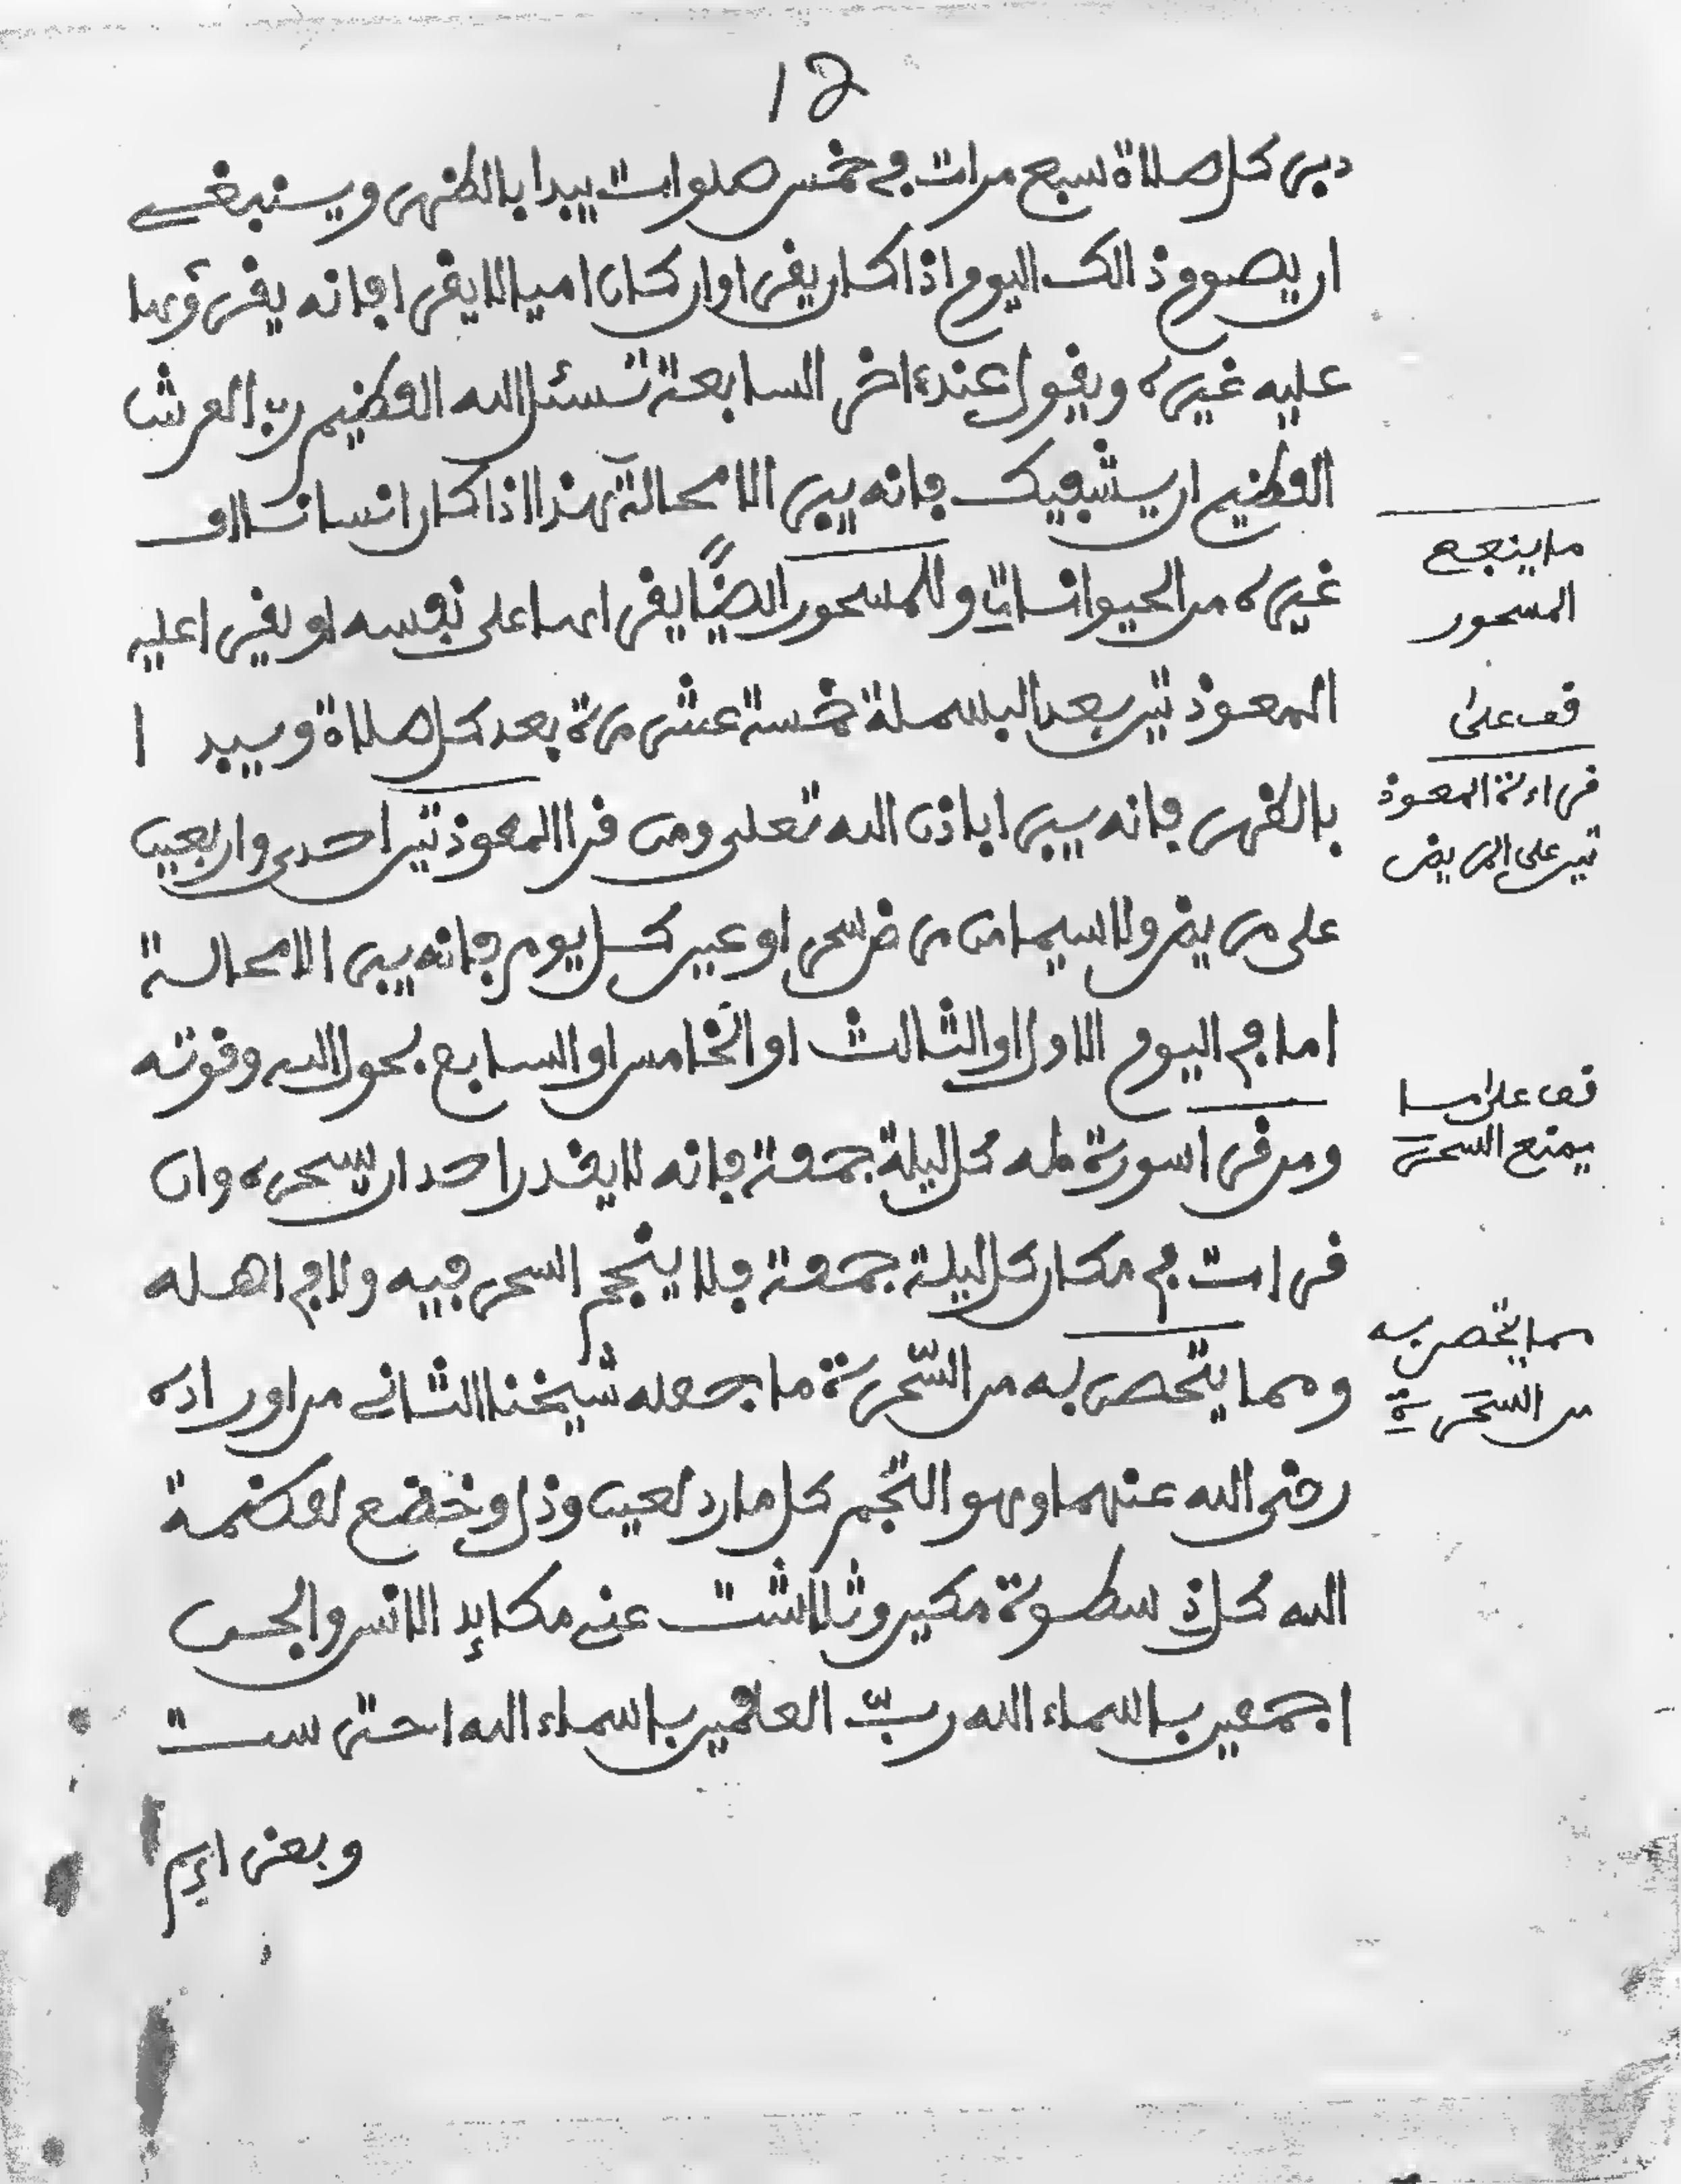 12
دبر كل صلاة سبع مرات في خمس صلوات يبدا بالظهر وينبغي
ان يصوم ذالك اليوم اذا كان يقرا وان كان اميا لا يقرا فانه يقرؤها
عليه غيره ويقول عند ءاخر السابعة نسئل الله العظيم رب العرش
العظيم ان يشفيك فانه يبرا لا محالة هذا اذا كان انسانا او
غيره من الحيوانات وللمسحور ايضًا يقراها على نفسه او يقرا عليه
المعوذتين بعد البسملة خمسة عشر مرة بعد كل صلاة ويبدا
بالظهر فانه يبرا باذن الله تعلى ومن قرا المعوذتين احدى واربعين
على مريض ولا سيما من مرض سحر او عين كل يوم فانه يبرا لا محالة
اما في اليوم الاول او الثالث او الخامس او السابع بحول الله وقوته
ومن قرا سورة طه كل ليلة جمعة فانه لا يقدر احد ان يسحره وان
قرات في مكان كل ليلة جمعة فلا ينجم السحر فيه ولا في اهله
ومما يتحصن به من السّحرة ما جعله شيخنا الثاني من اوراده
رضى الله عنهما وهو التجم كل مارد لعين وذل وخضع لعظمة
الله كل ذي سطوة مكين وتلاشت عني مكايد الانس والجن
اجمعين باسماء الله ربّ العلمين باسماء الله احترست
وبعزايم
ما ينفع
المسحور
قف على
قراءة المعوذ
تين على المريض
قف على ما
يمنع السحرة
مما يتحصن به
من السحرة